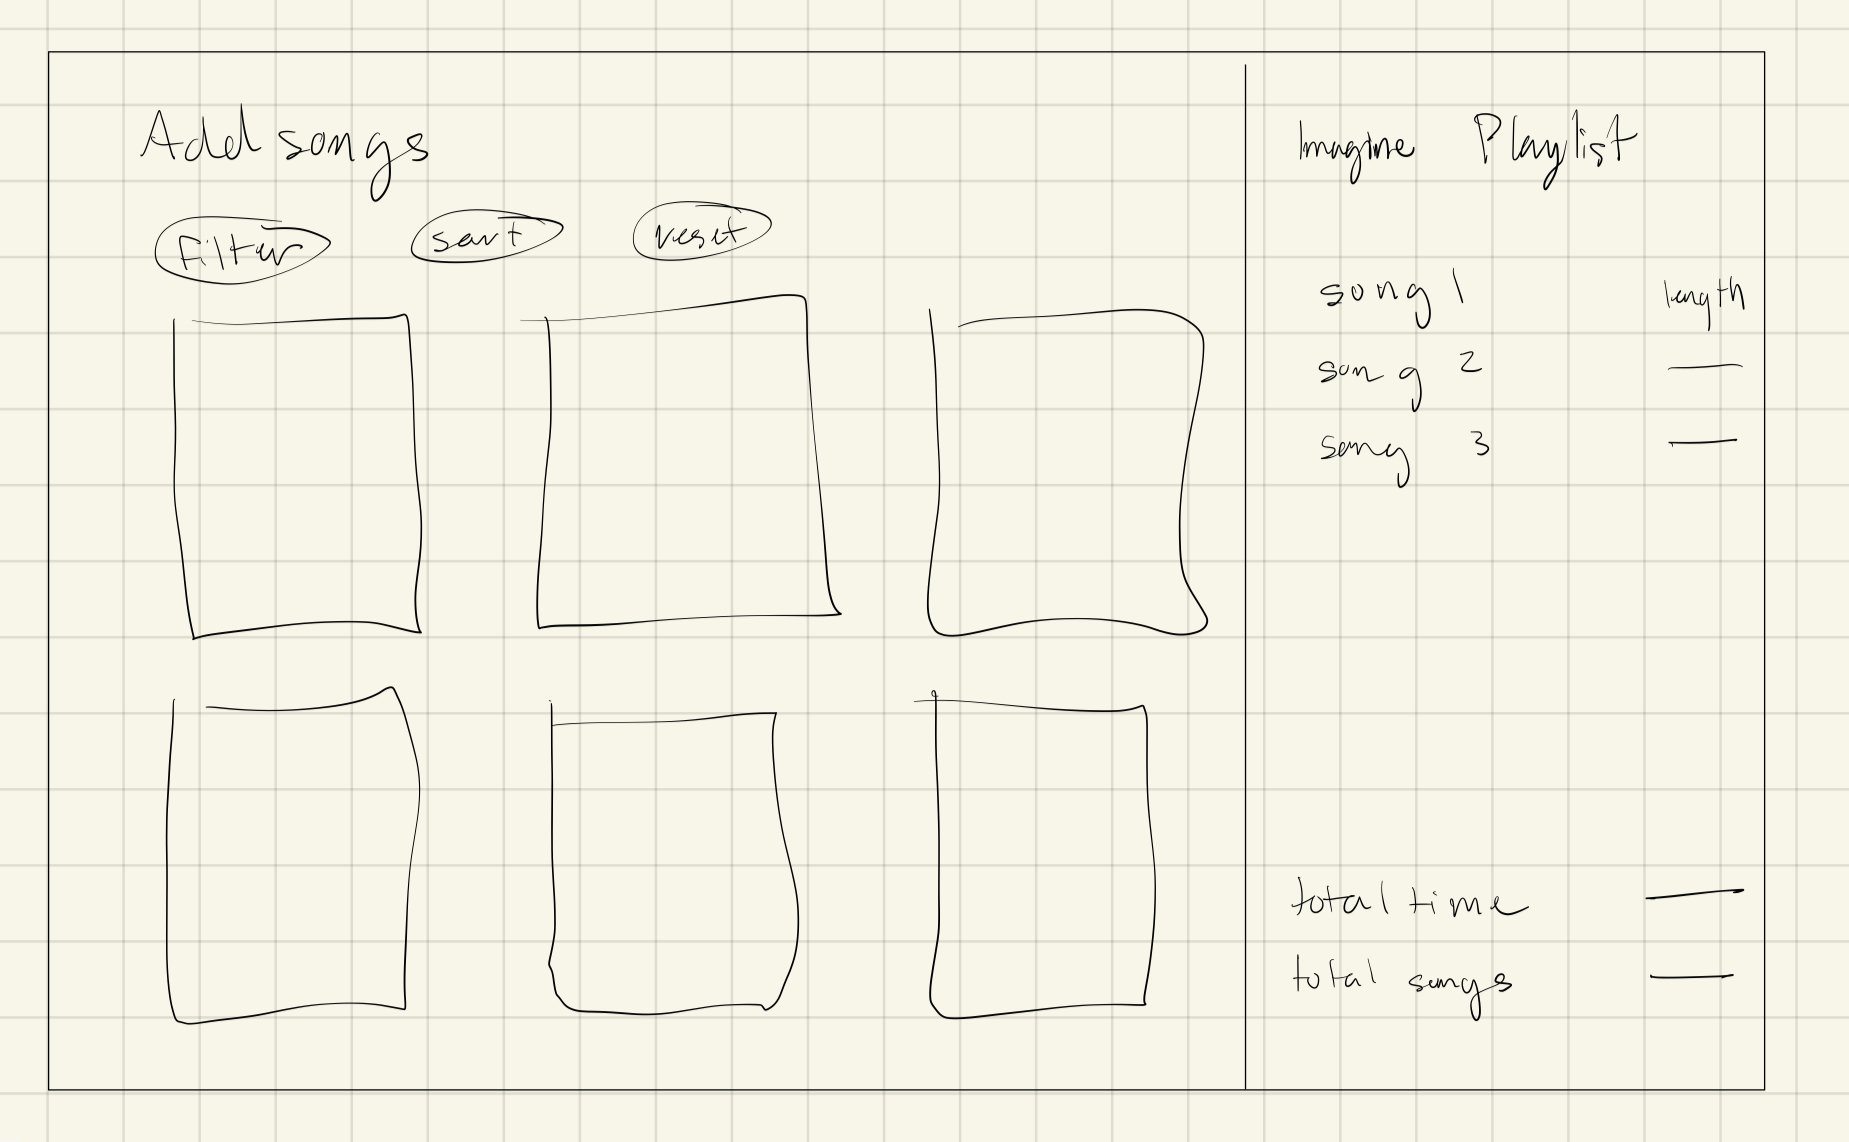 Add songs
filter sort reset
Imagine Playlist
song 1 length
song 2
song 3
total time
total songs